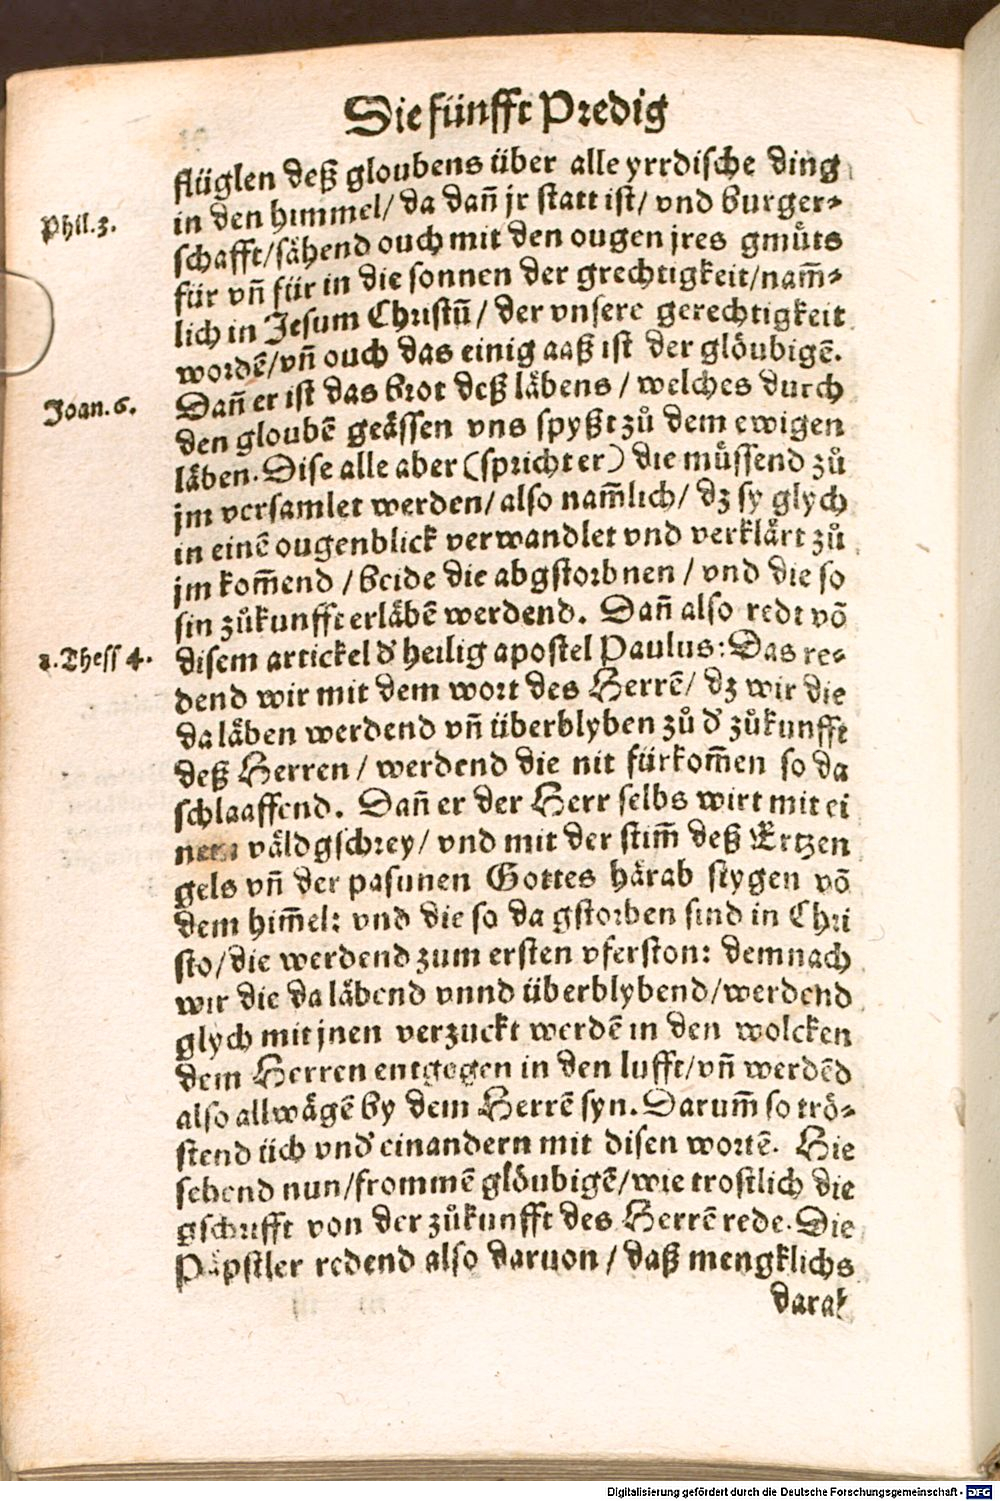 Die fünfft Predig
flüglen deß gloubens über alle yrrdische ding
in den himmel/ da dañ jr statt ist/ vnd burger-
Phil.3.
schafft/sähend ouch mit den ougen jres gmuͤts
für vñ für in die sonnen der grechtigkeit/nam̃-
lich in Jesum Christũ/ der vnsere gerechtigkeit
wordẽ/vñ ouch das einig aaß ist der glöubigẽ.
Dañ er ist das brot deß läbens / welches durch
Joan.6.
den gloubẽ geässen vns spyßt zuͦ dem ewigen
läben. Dise alle aber (spricht er) die muͤssend zuͦ
jm versamlet werden/ also nam̃lich/ dz sy glych
in einẽ ougenblick verwandlet vnd verklärt zuͦ
jm kom̃end / beide die abgstorbnen / vnd die so
sin zuͦkunfft erläbẽ werdend. Dañ also redt võ
disem artickel d' heilig apostel Paulus: Das re-
1.Thess 4.
dend wir mit dem wort des Herrẽ/ dz wir die
da läben werdend vñ überblyben zuͦ d' zuͦkunfft
deß Herren / werdend die nit fürkom̃en so da
schlaaffend. Dañ er der Herr selbs wirt mit ei
nem väldgschrey/ vnd mit der stim̃ deß Ertzen
gels vñ der pasunen Gottes härab stygen võ
dem him̃el: vnd die so da gstorben sind in Chri
sto/die werdend zum ersten vferston: demnach
wir die da läbend vnnd überblybend/werdend
glych mit jnen verzuckt werdẽ in den wolcken
dem Herren entgegen in den lufft/vñ werdẽd
also allwägẽ by dem Herrẽ syn. Darum̃ so trö-
stend üch vnd' einandern mit disen wortẽ. Hie
sehend nun/frommẽ glöubigẽ/wie trostlich die
gschrifft von der zuͦkunfft des Herrẽ rede. Die
Päpstler redend also daruon / daß mengklichs
darab
Digitalisierung gefördert durch die Deutsche Forschungsgemeinschaft - DFG